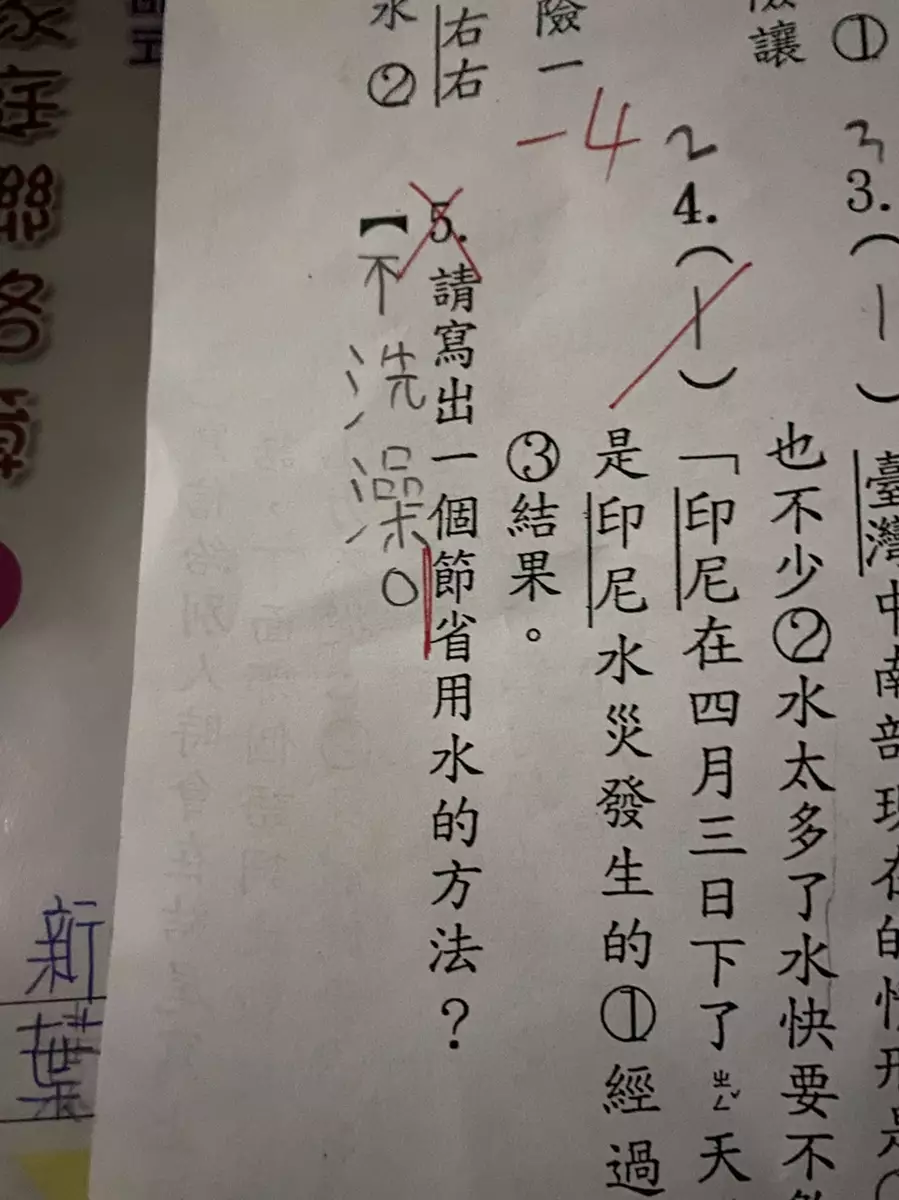 ①
3
3.
(1)
臺灣中南部現在的情形是
險讓
也不少②水太多了水快要不
2
4.
(1)
「印尼在四月三日下了ㄓㄥˇ天
險一
-4
是印尼水災發生的①經過
③結果。
右右
5.請寫出一個節省用水的方法？
水②
【不洗澡。
家庭聯絡簿
新葉